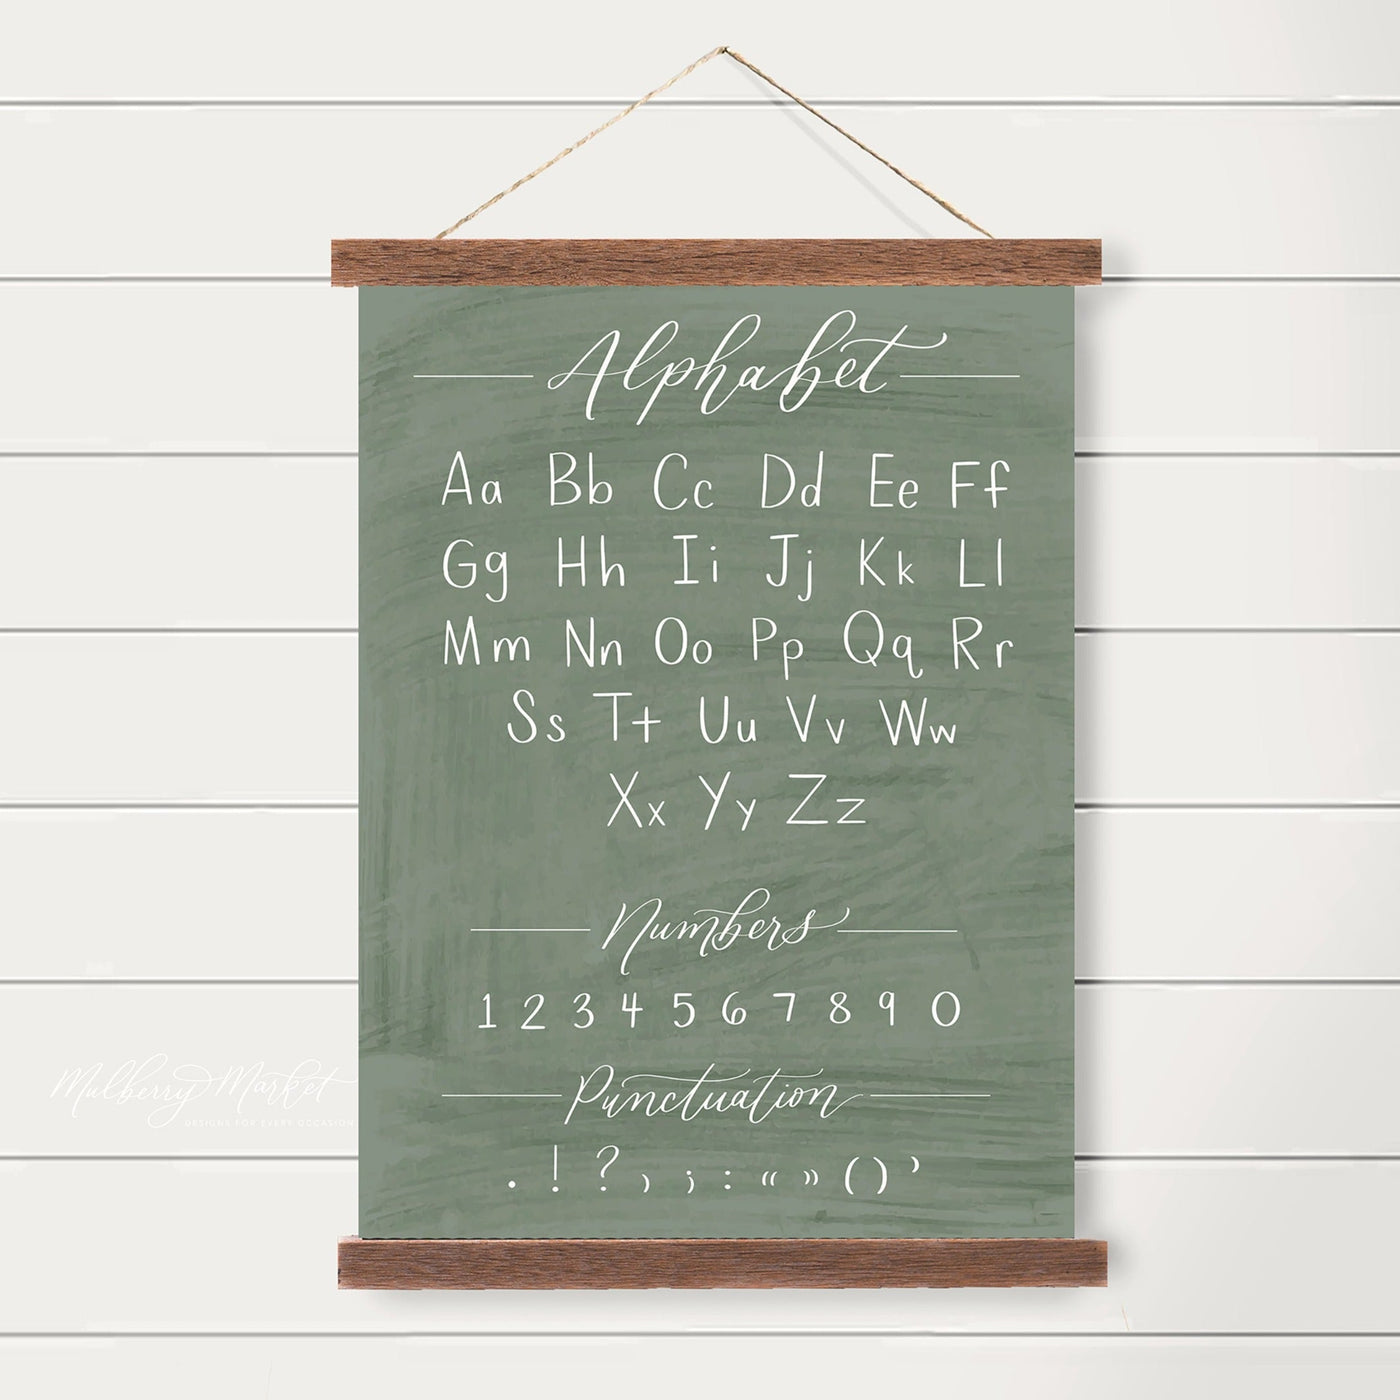 Alphabet
Aa Bb Cc Dd Ee Ff
Gg Hh Ii Jj Kk Ll
Mm Nn Oo Pp Qq Rr
Ss Tt Uu Vv Ww
Xx Yy Zz
Numbers
1 2 3 4 5 6 7 8 9 0
Punctuation
. ! ? , ; : “ ” ( ) ’
Mulberry Market
DESIGNS FOR EVERY OCCASION